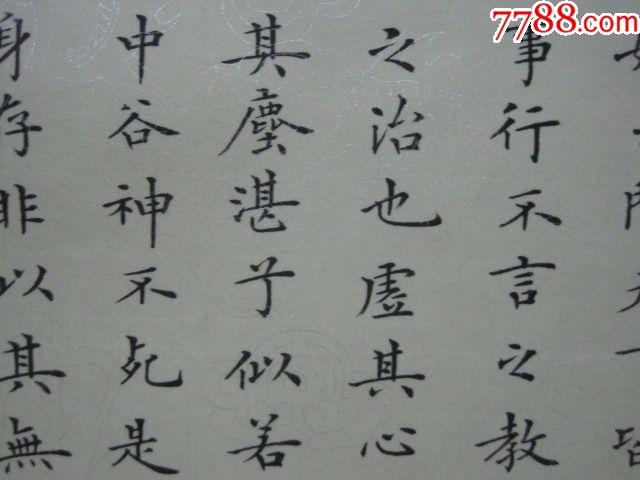 7788.com
妙之門天下皆
事行不言之教
之治也虛其心
其塵湛兮似若
中谷神不死是
身存非以其無